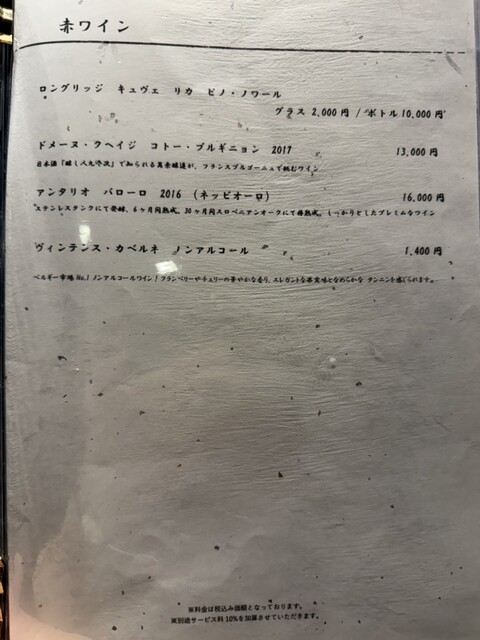 赤ワイン
ロングリッジ キュヴェ リカ ピノ・ノワール
グラス 2,000円 / ボトル 10,000円
ドメーヌ・クヘイジ コトー・ブルギニョン 2017 13,000円
日本酒「醸し人九平次」で知られる萬乗醸造が、フランスブルゴーニュで挑むワイン
アンタリオ バローロ 2016 (ネッビオーロ) 16,000円
ステンレスタンクにて発酵、6ヶ月間熟成。30ヶ月間スロベニアンオークにて熟成。しっかりとしたプレミアムなワイン
ヴィンテンス・カベルネ ノンアルコール 1,400円
ベルギー市場No.1ノンアルコールワイン!クランベリーやチェリーの華やかな香り、エレガントな果実味となめらかな タンニンを感じられます。
※料金は税込み価額となっております。
※別途サービス料10%を加算させていただきます。